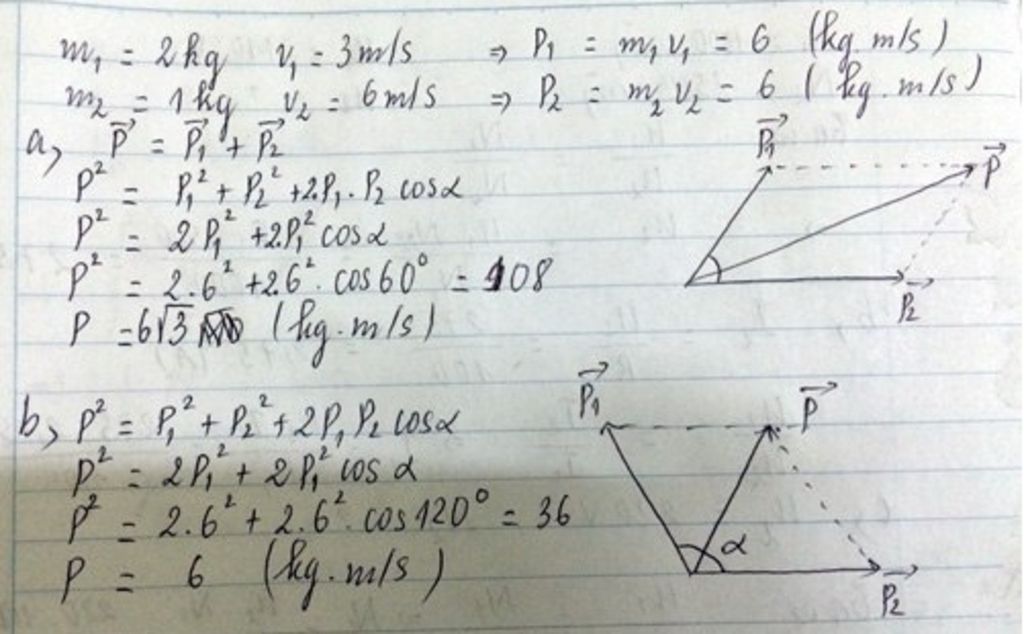 m₁ = 2kg v₁ = 3m/s ⇒ P₁ = m₁v₁ = 6 (kg.m/s)
m₂ = 1kg v₂ = 6m/s ⇒ P₂ = m₂v₂ = 6 (kg.m/s)
a, P⃗ = P⃗₁ + P⃗₂
P² = P₁² + P₂² + 2P₁.P₂ cosα
P² = 2P₁² + 2P₁² cosα
P² = 2.6² + 2.6². cos60° = 108
P = 6√3 (kg.m/s)
P⃗₁
P⃗
P⃗₂
b, P² = P₁² + P₂² + 2P₁P₂ cosα
P² = 2P₁² + 2P₁² cosα
P² = 2.6² + 2.6². cos120° = 36
P = 6 (kg.m/s)
P⃗₁ P⃗
α
P⃗₂